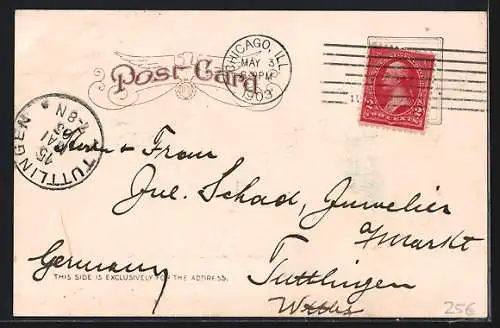 Post Card
CHICAGO, ILL.
MAY 3
PM
1903
TWO CENTS
TUTTLINGEN
15
MAI
03
7-8N
Herrn & Frau
Jul. Schad, Juwelier
a/Markt
Germany
THIS SIDE IS EXCLUSIVELY FOR THE ADDRESS.
Tuttlingen
256